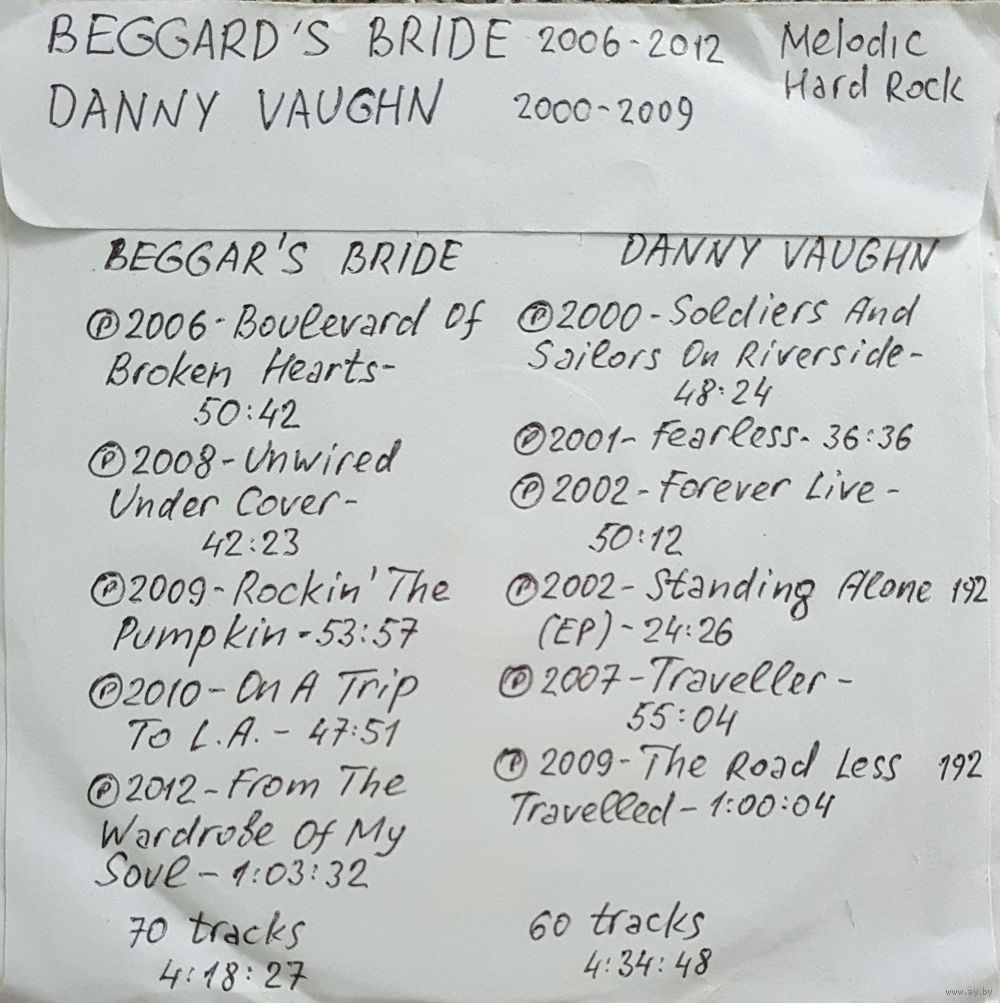 BEGGARD'S BRIDE 2006-2012 Melodic
Hard Rock
DANNY VAUGHN 2000-2009
BEGGAR'S BRIDE
Ⓟ2006-Boulevard Of
Broken Hearts-
50:42
Ⓟ2008-Unwired
Under Cover-
42:23
Ⓟ2009-Rockin' The
Pumpkin-53:57
Ⓟ2010-On A Trip
To L.A. - 47:51
Ⓟ2012-From The
Wardrobe Of My
Soul-1:03:32
70 tracks
4:18:27
DANNY VAUGHN
Ⓟ2000-Soldiers And
Sailors On Riverside-
48:24
Ⓟ2001-Fearless-36:36
Ⓟ2002-Forever Live-
50:12
Ⓟ2002-Standing Alone 192
(EP)-24:26
Ⓟ2007-Traveller-
55:04
Ⓟ2009-The Road Less 192
Travelled-1:00:04
60 tracks
4:34:48
www.ay.by